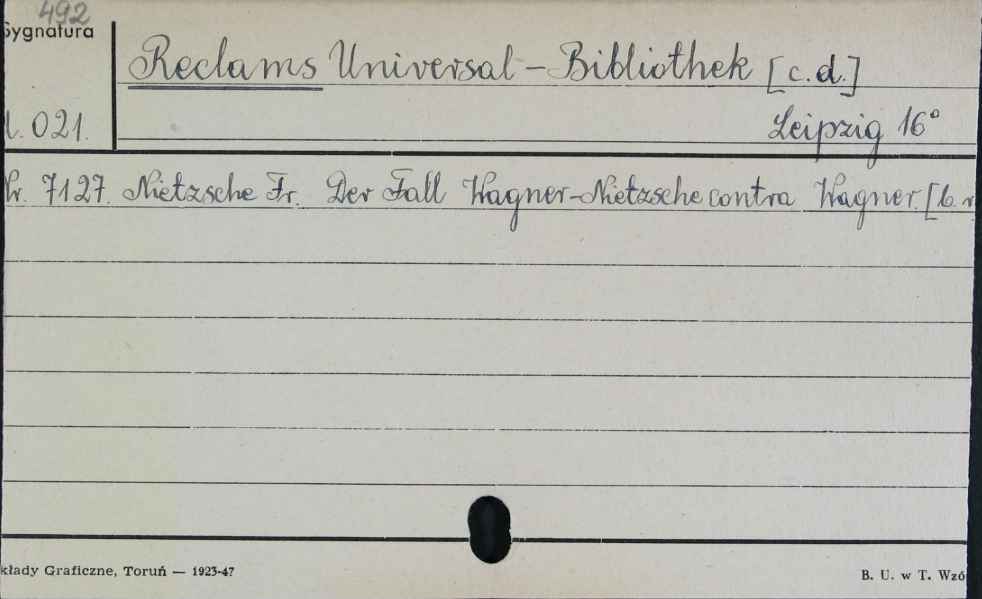 492
Sygnatura
Reclams Universal-Bibliothek [c.d.]
021.
Leipzig 16°
Nr. 7127. Nietzsche Fr. Der Fall Wagner-Nietzsche contra Wagner. [b. r
kłady Graficzne, Toruń — 1923-47
B. U. w T. Wzó